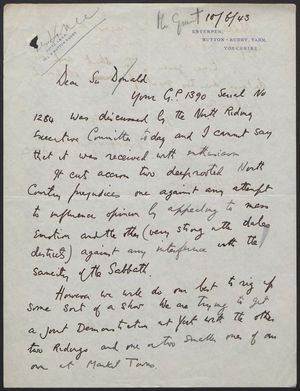 The Grant 10/6/43
ENTERPEN,
HUTTON-RUDBY, YARM,
YORKSHIRE.
Dear Sir Donald
Your G.P. 1390 Serial No
1264 was discussed by the North Riding
Executive Committee today and I cannot say
that it was received with enthusiasm
It cuts across two deeprooted North
Country prejudices one against any attempt
to influence opinion by appealing to mass
Emotion and the other (very strong in the dales
districts) against any interference with the
sanctity of the Sabbath.
However we will do our best to rig up
some sort of a show We are trying to get
a Joint Demonstration at York with the other
two Ridings and one or two smaller ones of our
own at Market Towns.